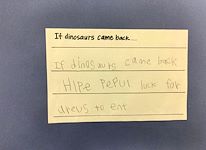 If dinosaurs came back...
If dinosaurs came back
HIPe PePul luck for
areus to ent